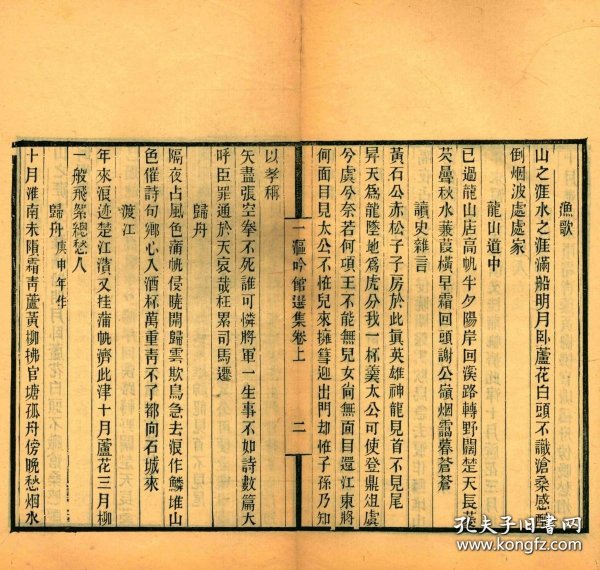 漁歌
山之涯水之涯滿船明月臥蘆花白頭不識滄桑感醉
倒烟波處處家
龍山道中
已過龍山店高帆半夕陽岸回溪路轉野闊楚天長
芡暈秋水蒹葭橫早霜回頭謝公嶺烟靄暮蒼蒼
讀史雜言
黃石公赤松子子房於此眞英雄神龍見首不見尾
昇天爲龍墜地爲虎分我一杯羹太公可使登鼎俎虞
兮虞兮奈若何項王不能無兒女尙無面目還江東將
何面目見太公不恠兒來擁篲迎出門却恠子孫乃知
一漚吟館選集卷上
二
以孝稱
矢盡張空拳不死誰可憐將軍一生事不如詩數篇大
呼臣罪通於天哀哉枉累司馬遷
歸舟
隔夜占風色蒲帆侵曉開歸雲欺鳥急去浪作鱗堆山
色催詩句鄉心入酒杯萬重靑不了都向石城來
渡江
年來浪迹楚江濆又挂蒲帆濟此津十月蘆花三月柳
一般飛絮總愁人
歸舟庚申年作
十月淮南未隕霜靑蘆黃柳拂官塘孤舟傍晚愁烟水
孔夫子旧书网
www.kongfz.com